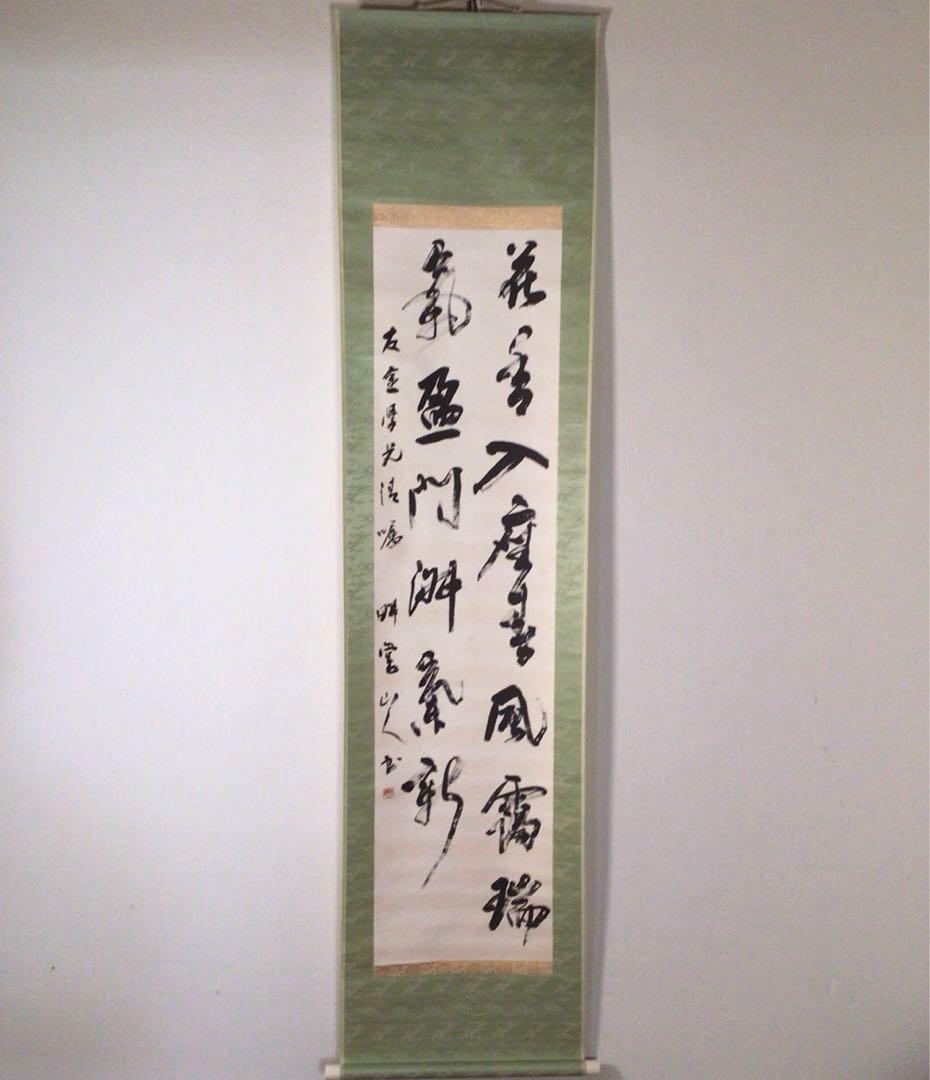 花香入座春風靄瑞
氣盈門淑景新
友金學兄清囑 畊雲山人書